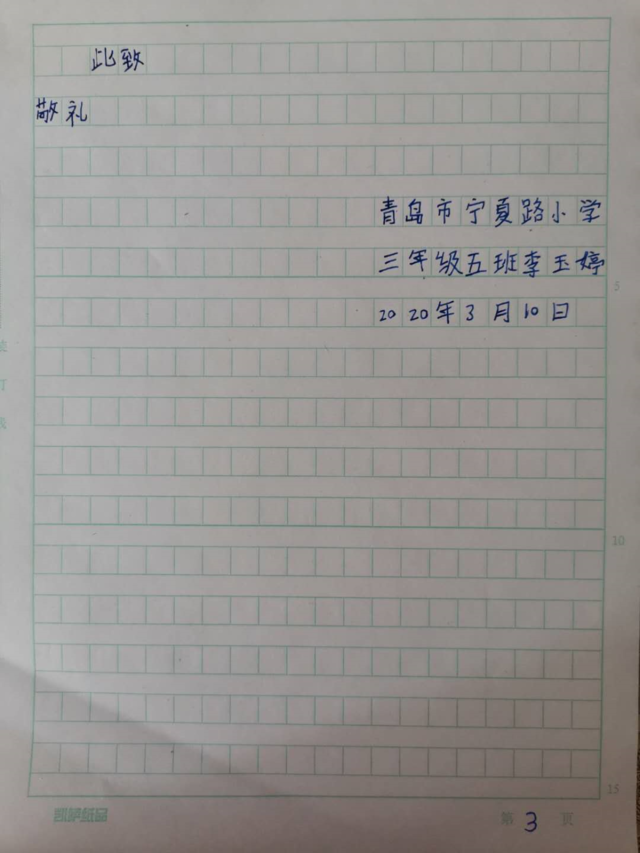 此致
敬礼
青岛市宁夏路小学
三年级五班李玉婷
2020年3月10日
5
10
15
第3页